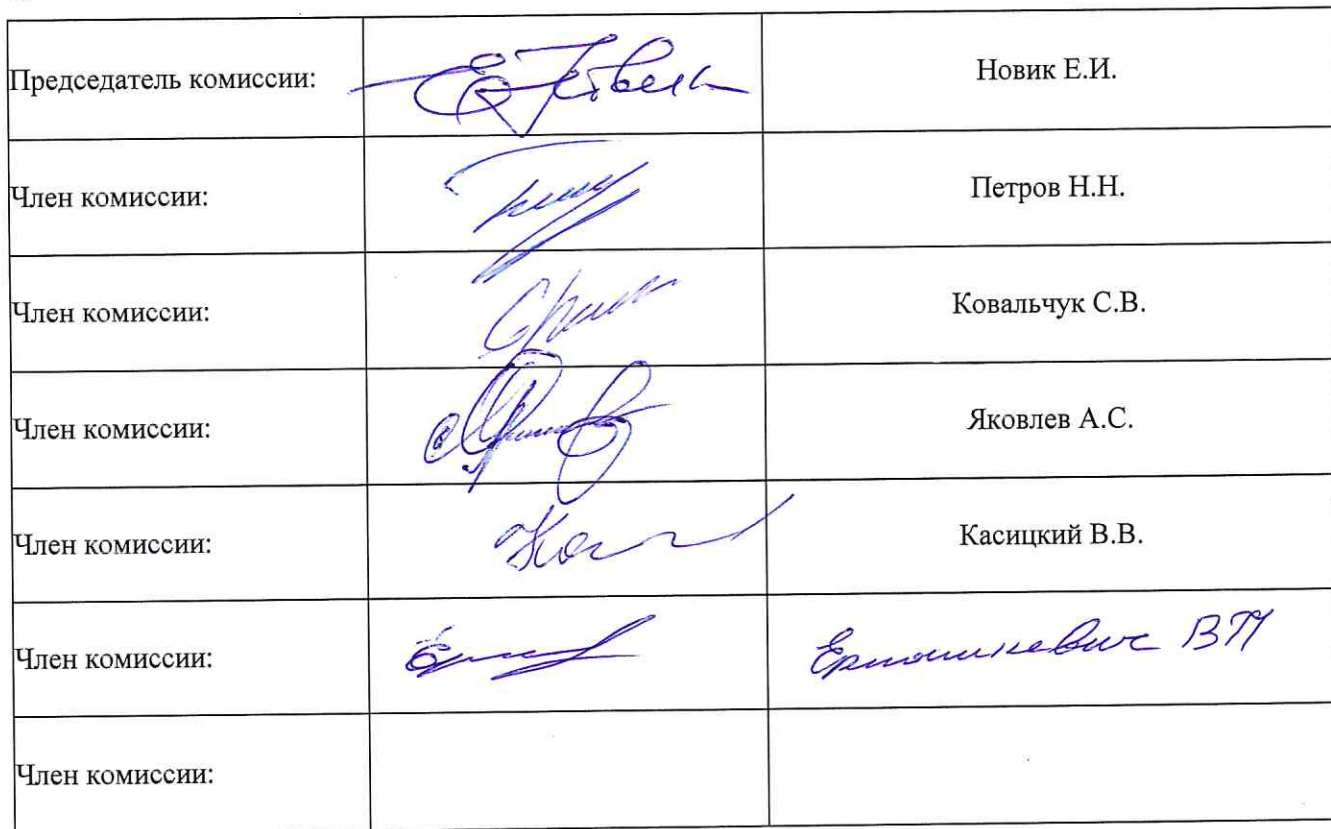 Председатель комиссии: Новик Е.И.
Член комиссии: Петров Н.Н.
Член комиссии: Ковальчук С.В.
Член комиссии: Яковлев А.С.
Член комиссии: Касицкий В.В.
Член комиссии: Ермашкевич ВП
Член комиссии: